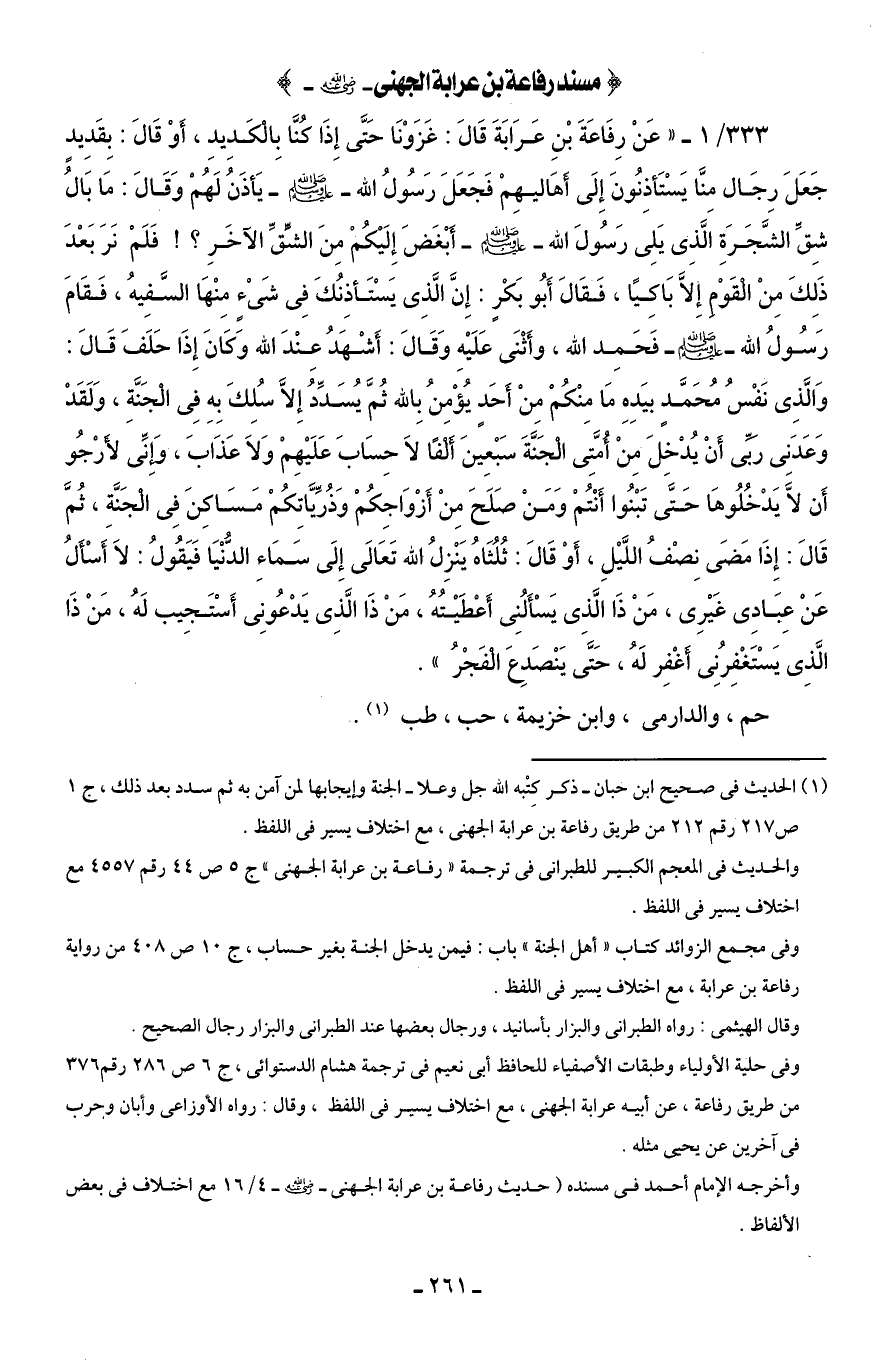 ﴿ مسند رفاعة بن عرابة الجهنى ـ رضي الله عنه ـ ﴾
٣٣٣/ ١ ـ « عَنْ رِفَاعَةَ بْنِ عَرَابَةَ قَالَ : غَزَوْنَا حَتَّى إِذَا كُنَّا بِالْكَدِيد ، أَوْ قَالَ : بِقَديد
جَعَلَ رِجَال مِنَّا يَسْتَأذِنُونَ إِلَى أَهَالِيهِمْ فَجَعَلَ رَسُولُ الله ـ ﷺ ـ يَأذَنُ لَهُمْ وَقَالَ : مَا بَالُ
شِقِّ الشَّجَرَةِ الَّذِى يَلِى رَسُولَ الله ـ ﷺ ـ أَبْغَضَ إِلَيْكُمْ مِنَ الشِّقِّ الآخَرِ ؟ ! فَلَمْ نَرَ بَعْدَ
ذَلِكَ مِنْ الْقَوْمِ إِلاَّ بَاكِيًا ، فَقَالَ أَبُو بَكْرٍ : إِنَّ الَّذِى يَسْتَأذِنُكَ فِى شَىْءٍ مِنْهَا السَّفِيهُ ، فَقَامَ
رَسُولُ الله ـ ﷺ ـ فَحَمِد الله ، وَأَثْنَى عَلَيْهِ وَقَالَ : أَشْهَدُ عِنْدَ الله وَكَانَ إِذَا حَلَفَ قَالَ :
وَالَّذِى نَفْسُ مُحَمَّدٍ بِيَدِهِ مَا مِنْكُمْ مِنْ أَحَدٍ يُؤْمِنُ بِالله ثُمَّ يُسَدِّدُ إِلاَّ سُلِكَ بِهِ فِى الْجَنَّةِ ، وَلَقَدْ
وَعَدَنِى رَبِّى أَنْ يُدْخِلَ مِنْ أُمَّتِى الْجَنَّةَ سَبْعِينَ أَلْفًا لاَ حِسَابَ عَلَيْهِمْ وَلاَ عَذَابَ ، وَإِنِّى لأَرْجُو
أَن لاَّ يَدْخُلُوهَا حَتَّى تَبْنُوا أَنْتُمْ وَمَنْ صَلَحَ مِنْ أَزْوَاجِكُمْ وَذُرِّيَّاتِكُمْ مَسَاكِنَ فِى الْجَنَّةِ ، ثُمَّ
قَالَ : إِذَا مَضَى نِصْفُ اللَّيْلِ ، أَوْ قَالَ : ثُلُثَاهُ يَنْزِلُ الله تَعَالَى إِلَى سَمَاءِ الدُّنْيَا فَيَقُولُ : لاَ أَسْأَلُ
عَنْ عِبَادِى غَيْرِى ، مَنْ ذَا الَّذِى يَسْأَلُنِى أَعْطَيْتُهُ ، مَنْ ذَا الَّذِى يَدْعُونِى أَسْتَجِيب لَهُ ، مَنْ ذَا
الَّذِى يَسْتَغْفِرُنِى أَغْفِر لَهُ ، حَتَّى يَنْصَدِعَ الْفَجْرُ » .
حم ، والدارمى ، وابن خزيمة ، حب ، طب (١) .
(١) الحديث فى صحيح ابن حبان ـ ذكر كتْبه الله جل وعلا ـ الجنة وإيجابها لمن آمن به ثم سدد بعد ذلك ، ج ١
ص٢١٧ رقم ٢١٢ من طريق رفاعة بن عرابة الجهنى ، مع اختلاف يسير فى اللفظ .
والحديث فى المعجم الكبير للطبرانى فى ترجمة « رفاعة بن عرابة الجهنى » ج ٥ ص ٤٤ رقم ٤٥٥٧ مع
اختلاف يسير فى اللفظ .
وفى مجمع الزوائد كتاب « أهل الجنة » باب : فيمن يدخل الجنة بغير حساب ، ج ١٠ ص ٤٠٨ من رواية
رفاعة بن عرابة ، مع اختلاف يسير فى اللفظ .
وقال الهيثمى : رواه الطبرانى والبزار بأسانيد ، ورجال بعضها عند الطبرانى والبزار رجال الصحيح .
وفى حلية الأولياء وطبقات الأصفياء للحافظ أبى نعيم فى ترجمة هشام الدستوائى ، ج ٦ ص ٢٨٦ رقم٣٧٦
من طريق رفاعة ، عن أبيه عرابة الجهنى ، مع اختلاف يسير فى اللفظ ، وقال : رواه الأوزاعى وأبان وحرب
فى آخرين عن يحيى مثله .
وأخرجه الإمام أحمد فى مسنده ( حديث رفاعة بن عرابة الجهنى ـ رضي الله عنه ـ ٤/ ١٦ مع اختلاف فى بعض
الألفاظ .
ـ ٢٦١ ـ